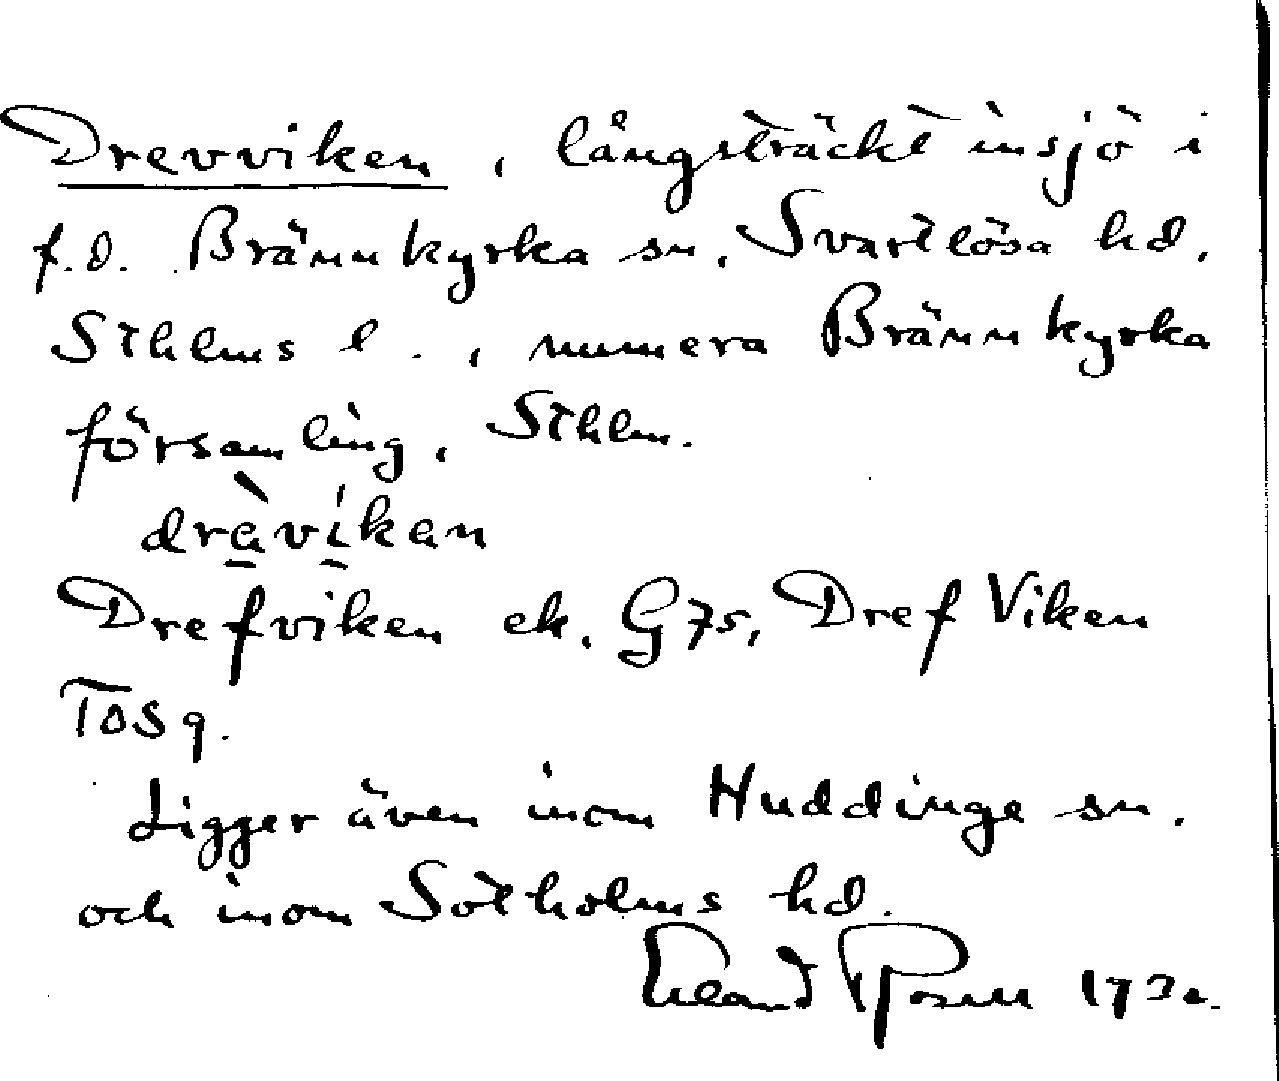 Drevviken, långsträckt insjö i
f.d. Brännkyrka sn, Svartlösa hd,
Sthlms l., numera Brännkyrka
församling, Sthlm.
dràvíkan
Drefviken ek. G75, Dref Viken
TOS9.
Ligger även inom Huddinge sn.
och inom Sotholms hd.
Erland Rosell